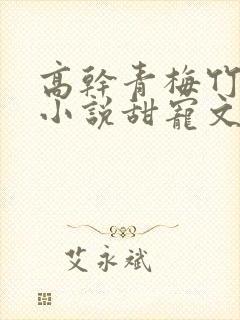 高幹青梅竹
小說甜寵文
艾永斌